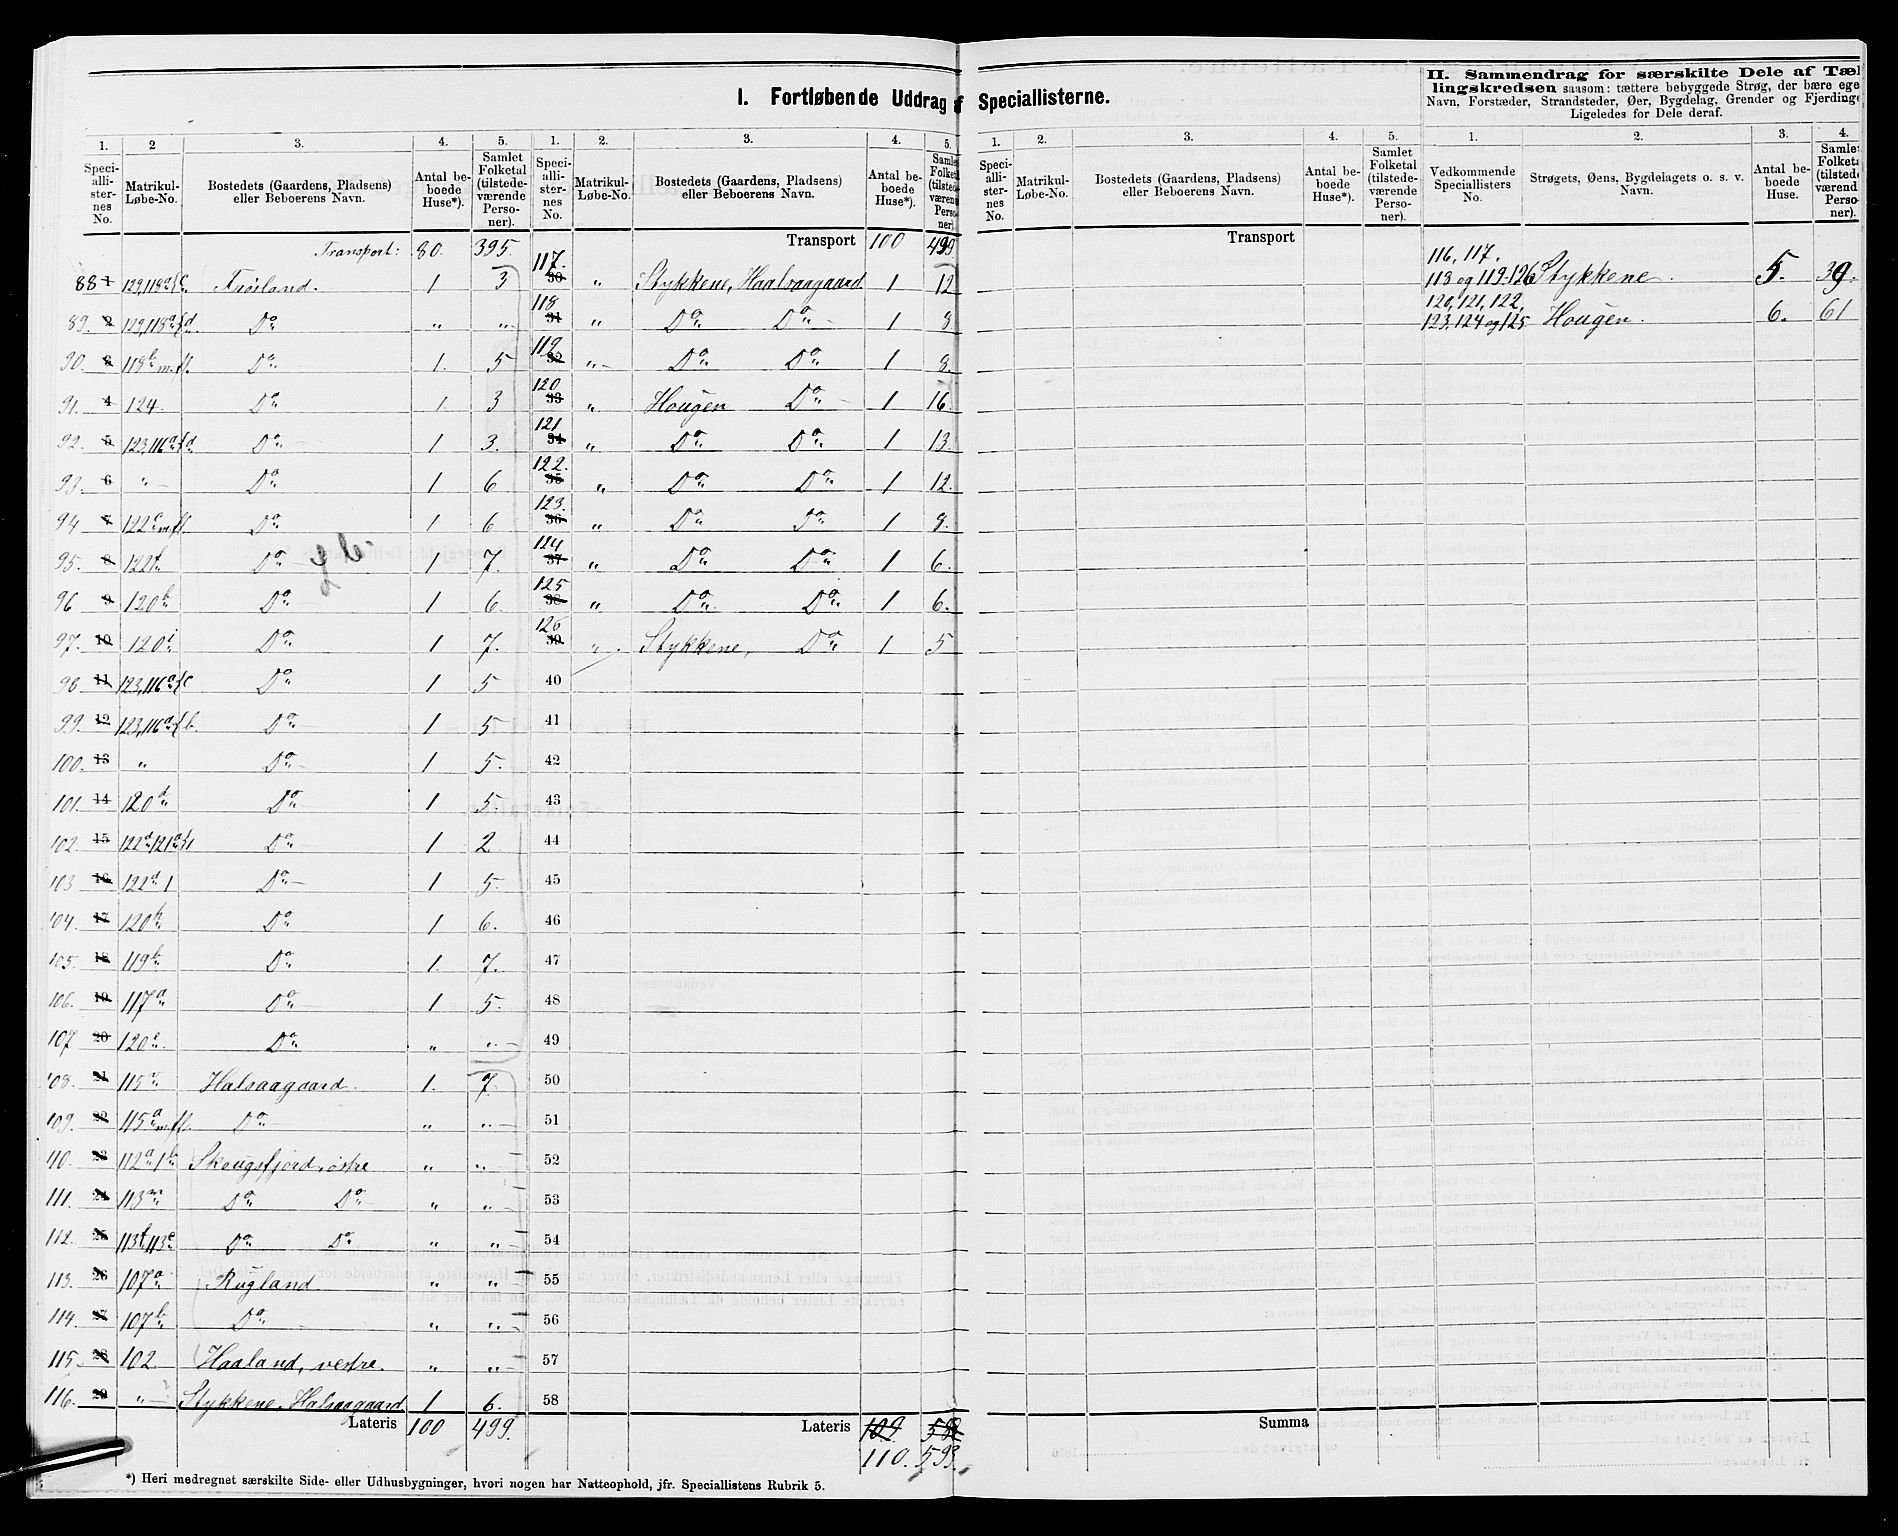 I. Fortløbende Uddrag af Speciallisterne.
II. Sammendrag for særskilte Dele af Tæl
lingskredsen saasom: tættere bebyggede Strøg, der bære ege
Navn, Forstæder, Strandsteder, Øer, Bygdelag, Grender og Fjerdinge
Ligeledes for Dele deraf.
1. 2 3. 4. 5.
Speciallisternes No. Matrikul-Løbe-No. Bostedets (Gaardens, Pladsens) eller Beboerens Navn. Antal beboede Huse*). Samlet Folketal (tilstedeværende Personer).
Transport: 80. 395.
88 1 129,118a c Frøisland. 1 3
89. 2 129,118a d. Do „ „
90. 3 118b m.fl. Do 1. 5
91. 4 124. Do 1. 3
92. 5 123,116a d. Do 1 3.
93. 6 „ Do 1 6
94 7 122c m.fl. Do 1 6
95. 8 122b Do 1 7.
96 9 120b Do 1 6.
97. 10 120i Do 1 7.
98. 11 123,116a c Do 1 5
99. 12 123,116a b. Do 1 5
100. 13 „ Do 1 5.
101. 14 120d Do 1 5.
102. 15 122d 121a Do 1 2
103 16 122d 1 Do 1 5.
104. 17 120h Do 1 6.
105. 18 119b Do 1. 7.
106. 19 117a Do 1 5.
107 20 120 Do „ „
108. 21 115 Halsaagaard. 1. 7.
109. 22 115a m.fl. Do „ „
110. 23 112a 1b Skougsfjord, østre „ „
111. 24 113m Do Do „ „
112. 25 113f, 113e Do Do „ „
113. 26 107a Rugland. „ „
114. 27 107b Do „ „
115. 28 102. Haaland, vestre. „ „
116. 29 „ Stykkene, Halsaagaard 1 6.
Lateris 100 499.
1. 2. 3. 4. 5.
Speciallisternes No. Matrikul-Løbe-No. Bostedets (Gaardens, Pladsens) eller Beboerens Navn. Antal beboede Huse*). Samlet Folketal (tilstedeværende Personer)
Transport 100 499
117. 30 „ Stykkene, Haalsaagaard 1 12
118 31 „ Do Do 1 8
119. 32 „ Do Do 1 8.
120 33 „ Hougen Do 1 16.
121 34 „ Do Do 1 13.
122. 35 „ Do Do 1 12.
123. 36 „ Do Do 1 8.
124 37 „ Do Do 1 6.
125 38 „ Do Do 1 6.
126 39 „ Stykkene, Do 1 5
40
41
42
43
44
45
46
47
48
49
50
51
52
53
54
55
56
57
58
Lateris 109
110. 593.
*) Heri medregnet særskilte Side- eller Udhusbygninger, hvori nogen har Natteophold, jfr. Speciallistens Rubrik 5.
1. 2. 3. 4. 5.
Speciallisternes No. Matrikul-Løbe-No. Bostedets (Gaardens, Pladsens) eller Beboerens Navn. Antal beboede Huse*). Samlet Folketal (tilstedeværende Personer).
Transport
Summa
1. 2. 3. 4.
Vedkommende Speciallisters No. Strøgets, Øens, Bygdelagets o. s. v. Navn. Antal beboede Huse. Samlet Folketal (tilstedeværende Personer).
116, 117.
118 og 119-126 Stykkene. 5. 39.
120, 121, 122,
123, 124 og 125 Hougen. 6. 61